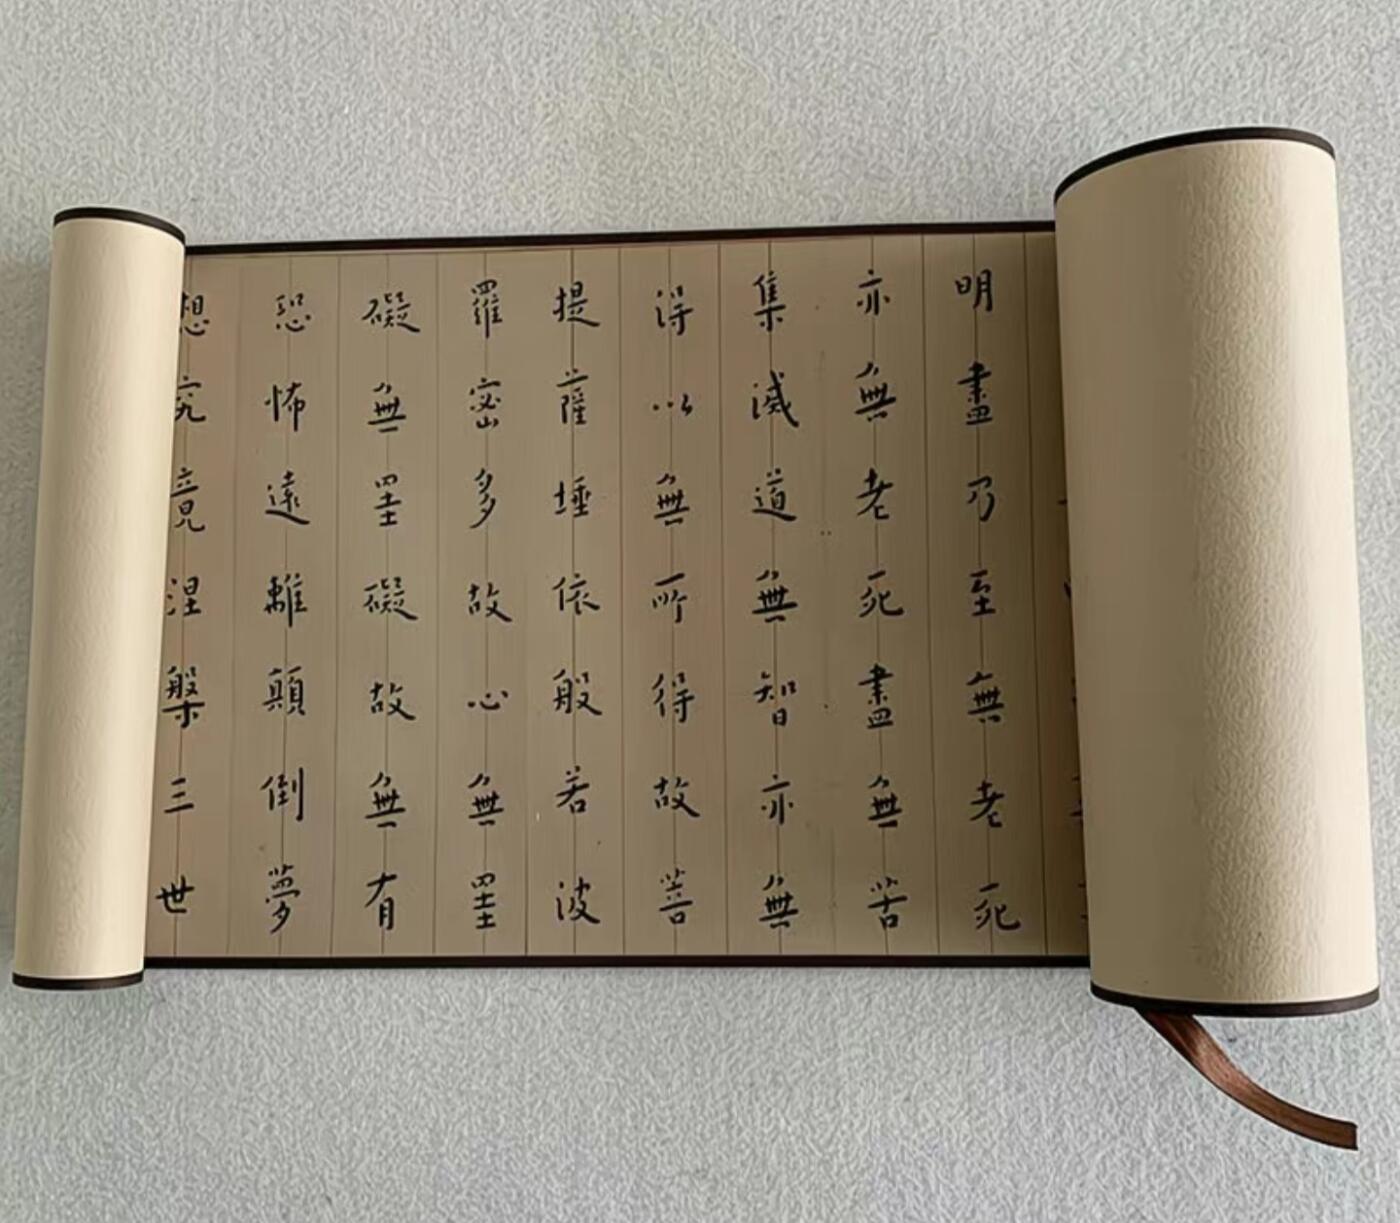 明盡乃至無老死
亦無老死盡無苦
集滅道無智亦無
得以無所得故菩
提薩埵依般若波
羅蜜多故心無罣
礙無罣礙故無有
恐怖遠離顛倒夢
想究竟涅槃三世